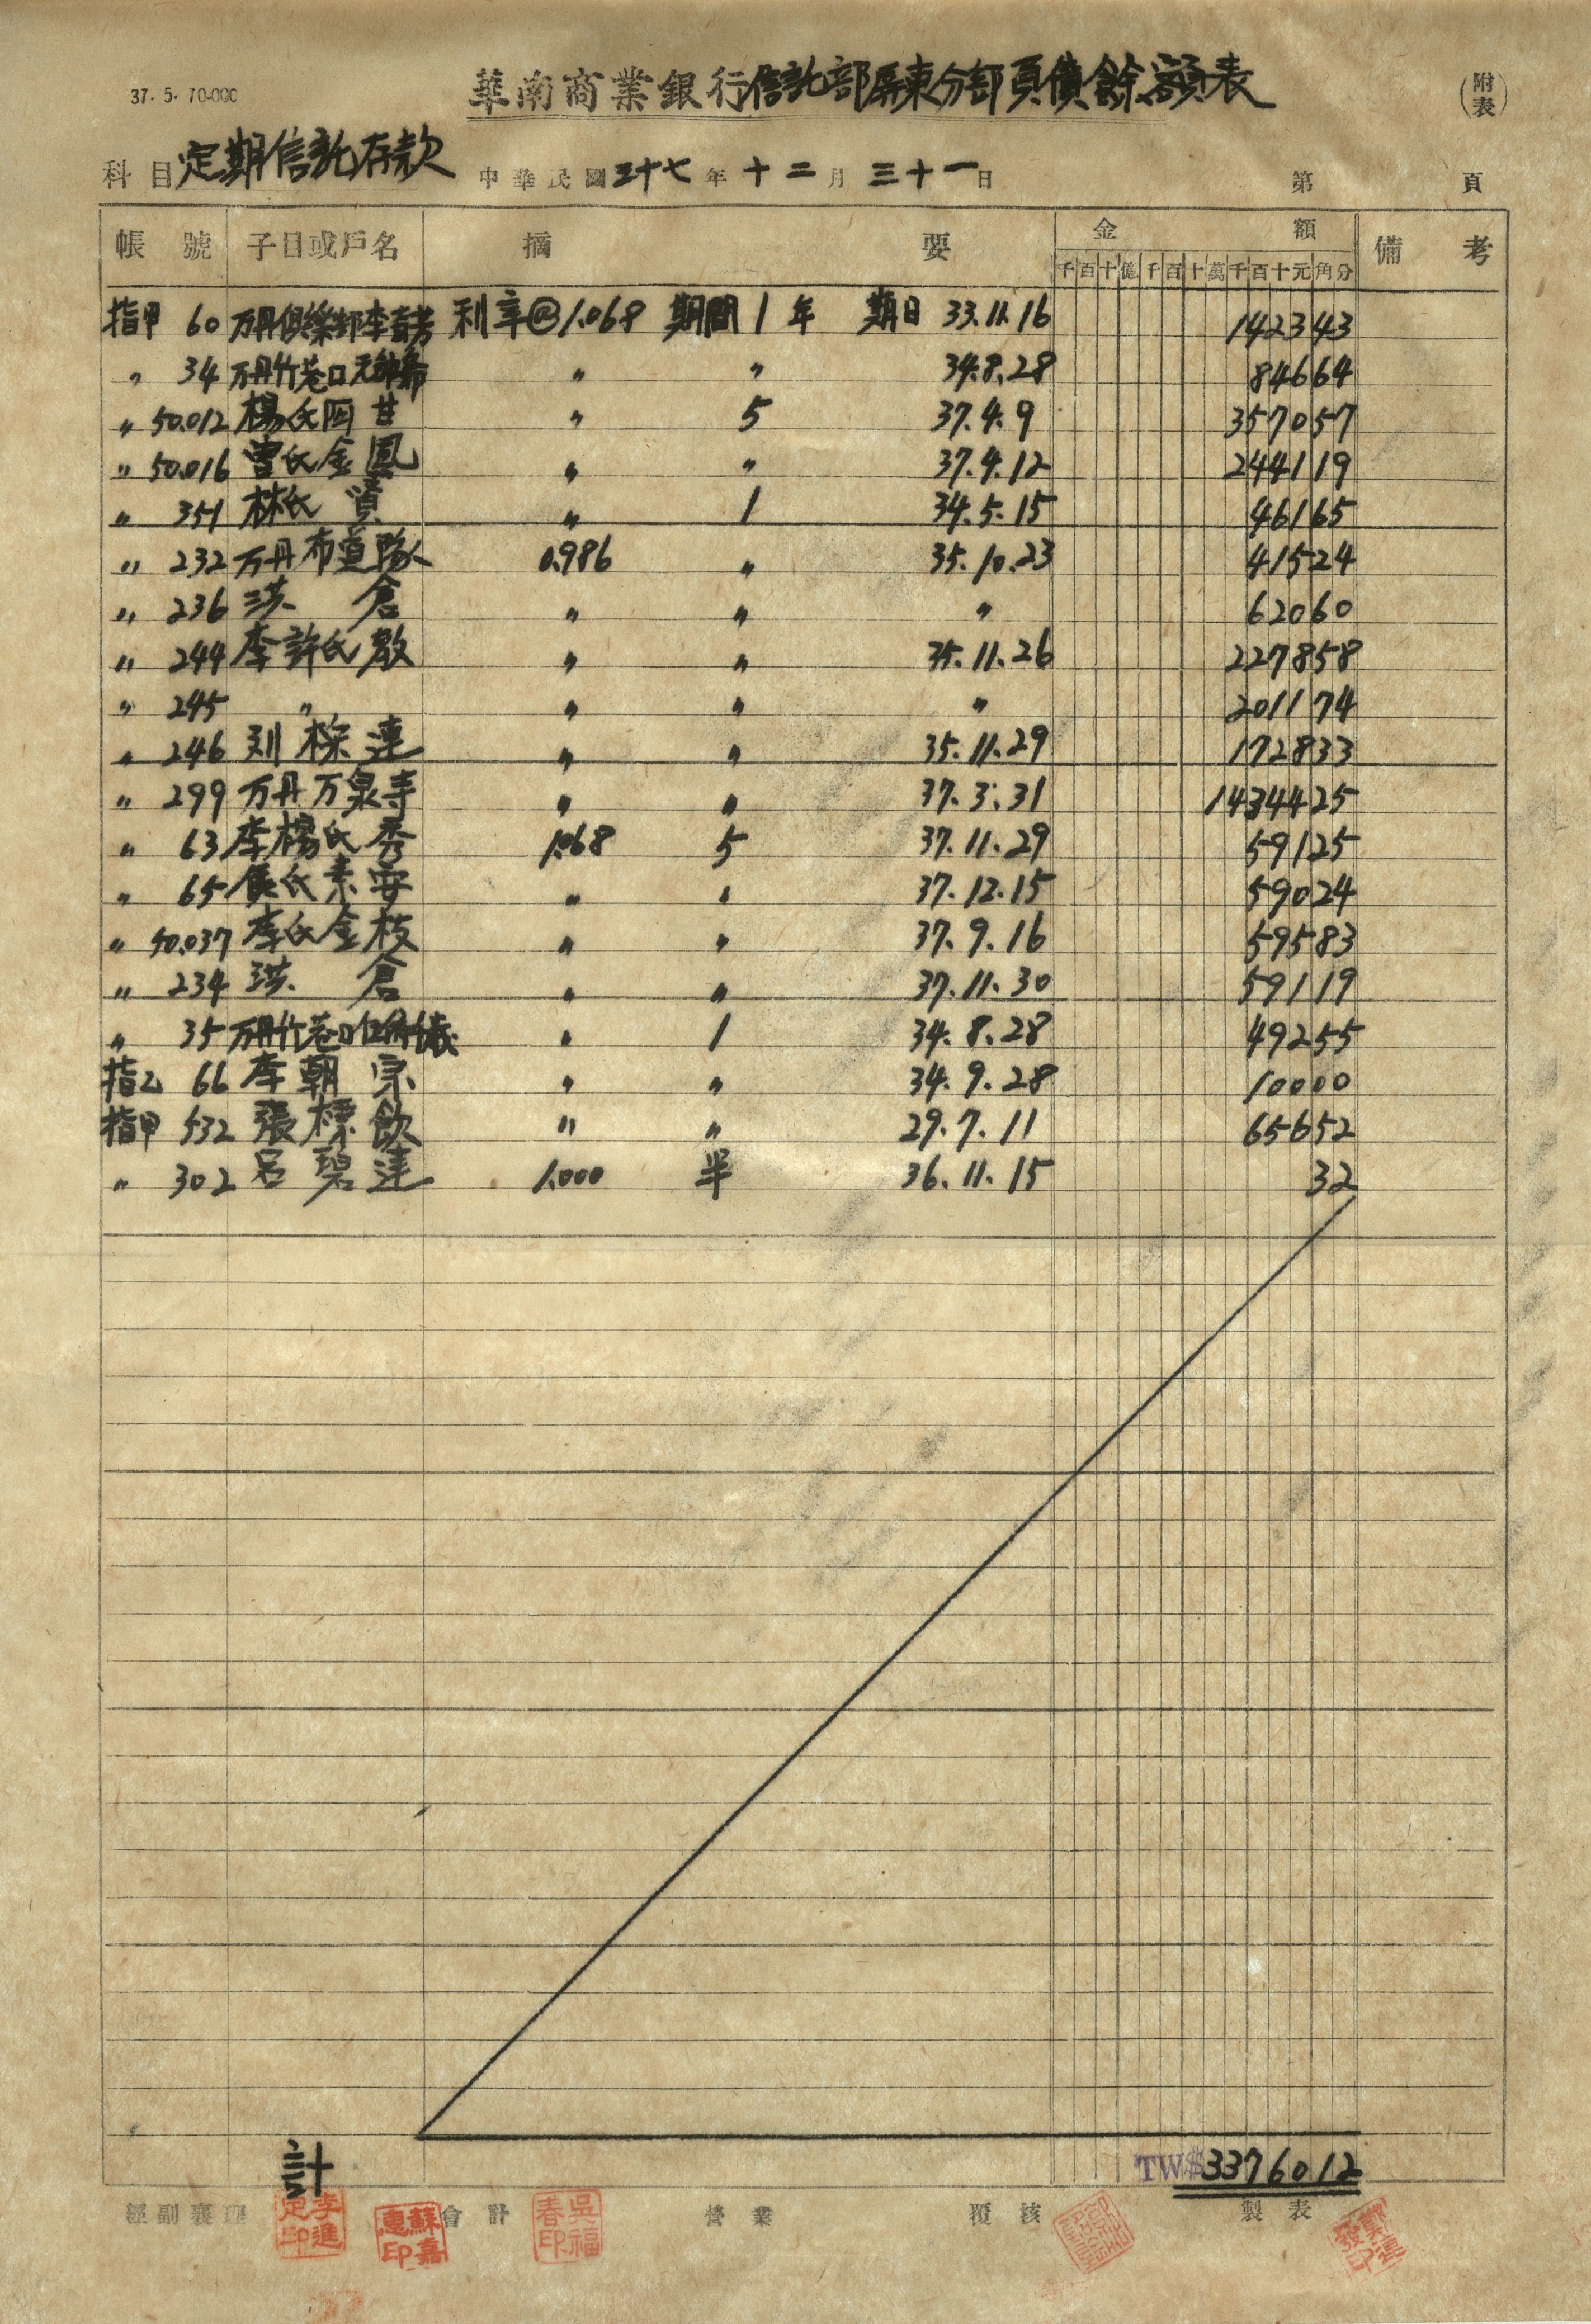 37. 5. 70.000
華南商業銀行信託部屏東分部負債餘額表
(附表)
科目定期信託存款 中華民國三十七年十二月三十一日 第 頁
帳號 子目或戶名 摘要 金額 備考
千百十億千百十萬千百十元角分
指甲 60 万丹俱樂部李 利率@1.068 期間1年 期日 33.11.16 142343
〃 34 万丹竹巷口元帥 〃 〃 34.8.28 84664
〃 50.012 楊氏罔甘 〃 5 37.4.9 357057
〃 50.016 曾氏金鳳 〃 〃 37.4.12 244119
〃 351 林氏 〃 1 34.5.15 46165
〃 232 万丹布道隊 0.986 〃 35.10.23 41524
〃 236 洪倉 〃 〃 〃 62060
〃 244 李許氏敬 〃 〃 35.11.26 227858
〃 245 〃 〃 〃 〃 201174
〃 246 刘連 〃 〃 35.11.29 172833
〃 299 万丹万泉寺 〃 〃 37.3.31 1434425
〃 63 李楊氏秀 1.068 5 37.11.29 59125
〃 65 氏素 〃 〃 37.12.15 59024
〃 50.037 李氏金枝 〃 〃 37.9.16 59583
〃 234 洪倉 〃 〃 37.11.30 59119
〃 35 万丹竹巷口 〃 1 34.8.28 49255
指乙 66 李朝宗 〃 〃 34.9.28 10000
指甲 532 張標飲 〃 〃 29.7.11 65652
〃 302 呂碧蓮 1.000 半 36.11.15 32
計 TW$3376012
經副襄理 會計 營業 覆核 製表
李進定印
蘇嘉惠印
吳福春印